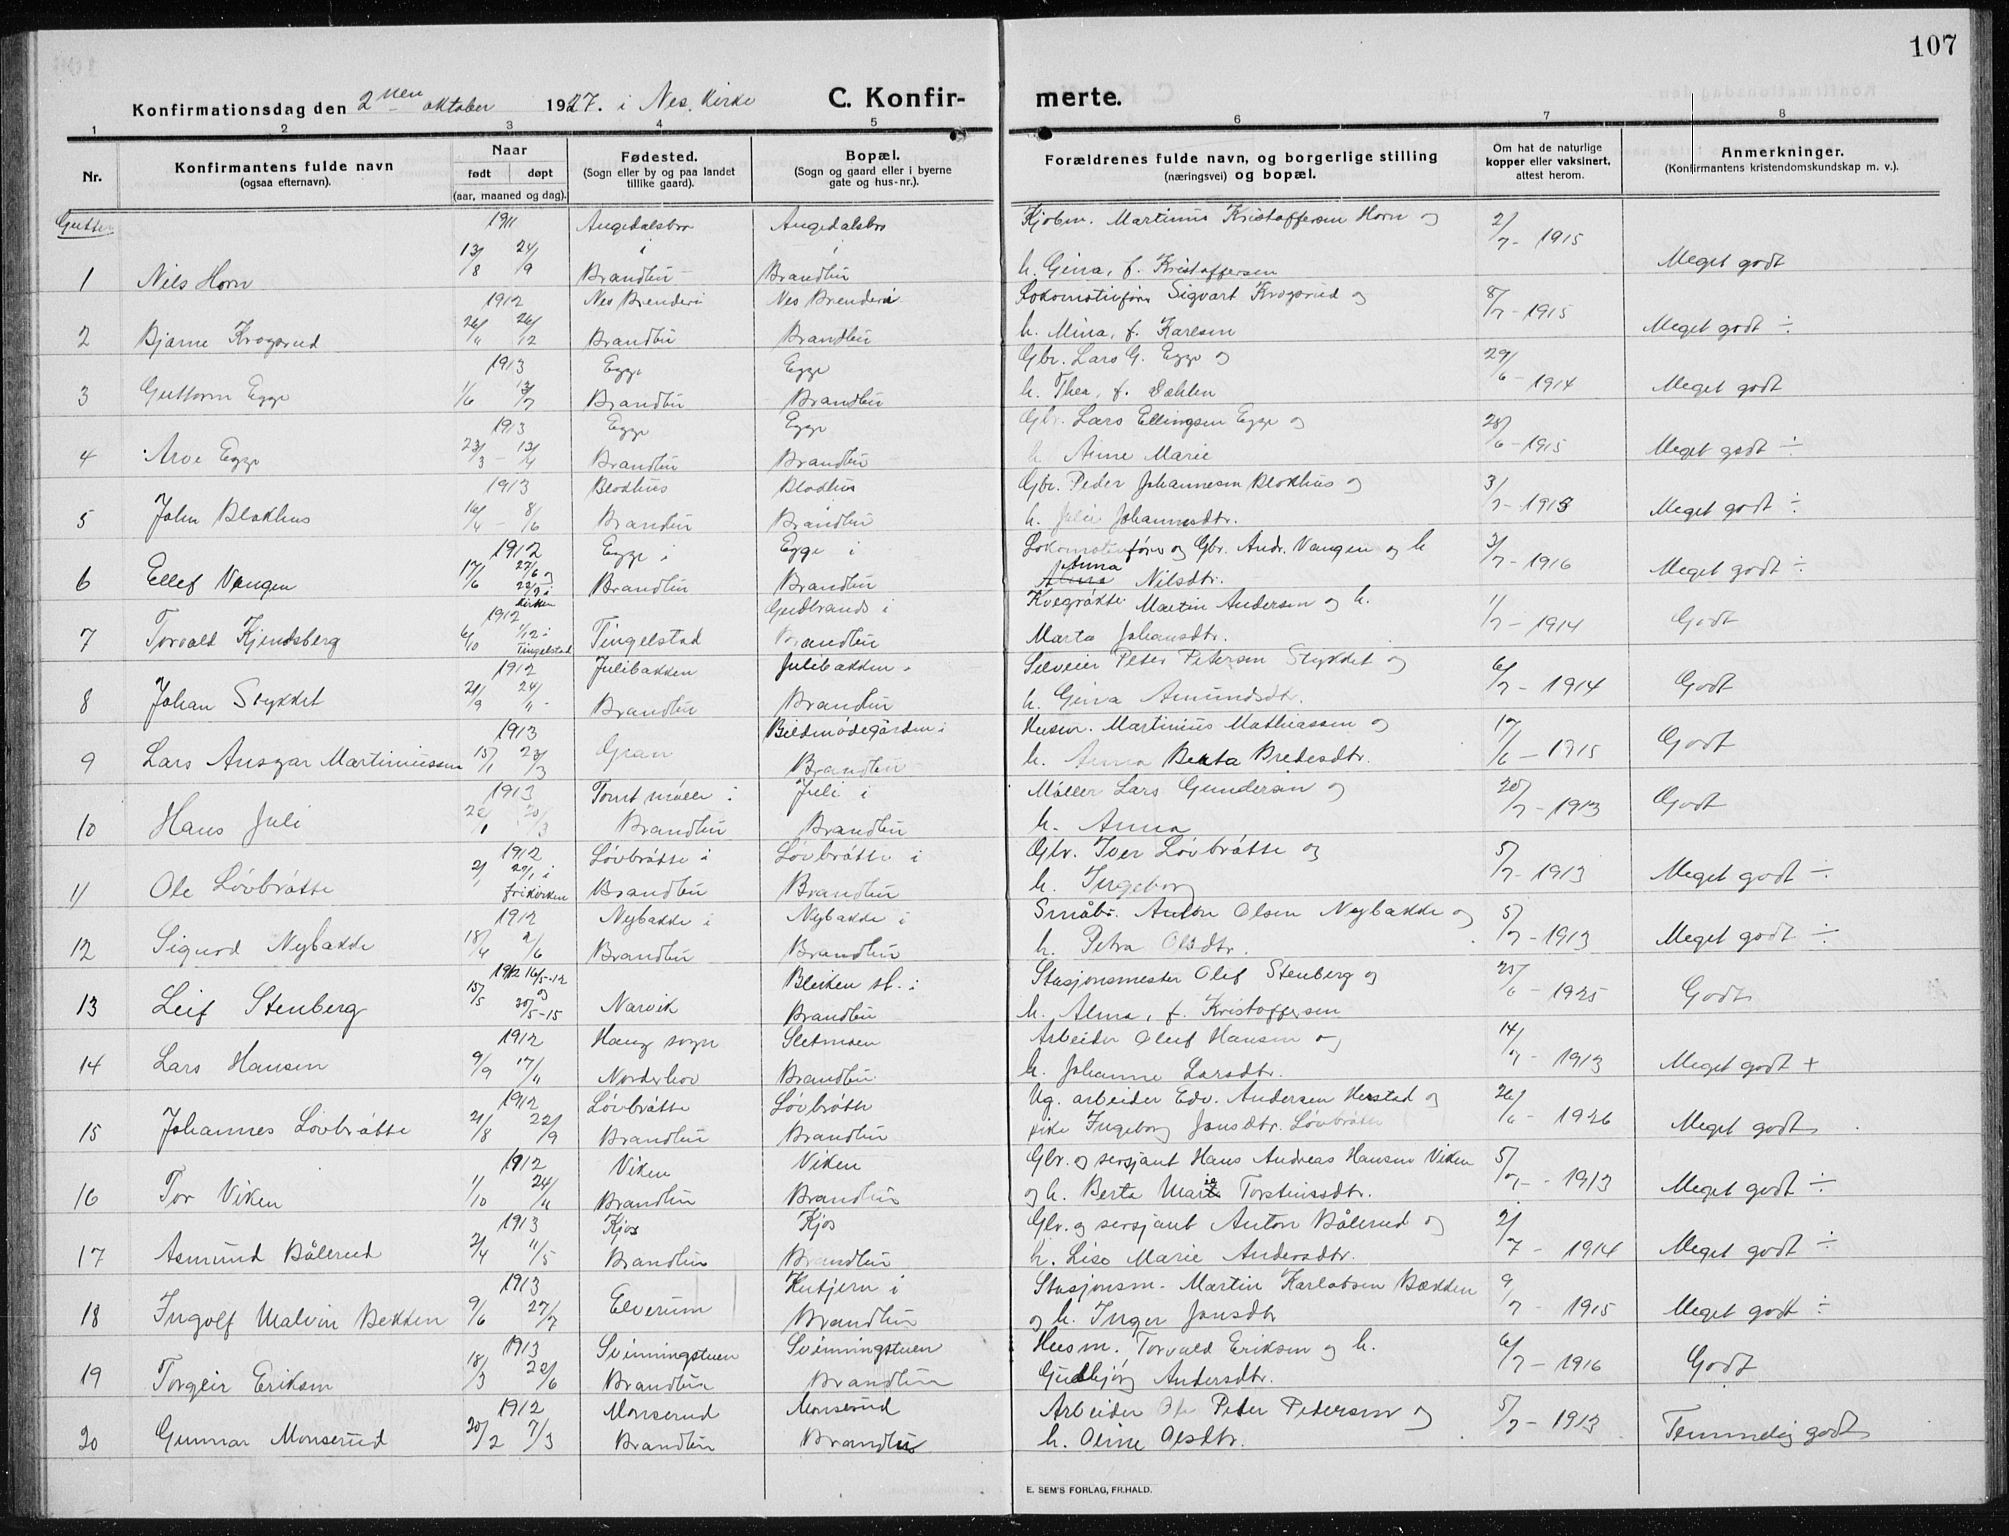 107
Konfirmationsdag den 2nen oktober 1927. i Nes kirke C. Konfir- merte.
1 2 3 4 5 6 7 8
Nr. Konfirmantens fulde navn (ogsaa efternavn). Naar født døpt (aar, maaned og dag). Fødested. (Sogn eller by og paa landet tillike gaard). Bopæl. (Sogn og gaard eller i byerne gate og hus-nr.). Forældrenes fulde navn, og borgerlige stilling (næringsvei) og bopæl. Om hat de naturlige kopper eller vaksinert, attest herom. Anmerkninger. (Konfirmantens kristendomskundskap m. v.).
Gutter
1911 Augedalsbro Augedalsbro Kjøbm. Martinius Kristoffersen Horn og 2/7 - 1915
1 Nils Horn 13/8 24/9 i Brandbu i Brandbu h. Gina, f. Kristoffersen Meget godt
1912 Nes Brenderi Nes Brenderi Lokomotivfører Sigvart Krogsrud og 8/7 - 1915
2 Bjarne Krogsrud 26/11 26/12 Brandbu Brandbu h. Mina, f. Karlsen Meget godt ÷
1913 Egge Egge Gbr. Lars G. Egge og 29/6 - 1914
3 Guttorm Egge 1/6 13/7 Brandbu Brandbu h. Thea, f. Dæhlen Meget godt
1913 Egge Egge Gbr. Lars Ellingsen Egge og 28/6 - 1915
4 Arve Egge 23/3 - 13/4 Brandbu Brandbu h. Anne Marie Meget godt ÷
1913 Blokhus Blokhus Gbr. Peder Johannesen Blokhus og 3/7 - 1915
5 John Blokhus 16/4 - 8/6 Brandbu Brandbu h. Julie Johannesdtr. Meget godt ÷
1912 Egge i Egge i Lokomotivfører og Gbr. Andr. Vangen og h 3/7 - 1916
6 Ellef Vangen 17/6 27/6 og 22/9 i kirken Brandbu Brandbu Anna Nilsdtr. Meget godt ÷
1912 Gudbrands i Kvegrøkter Martin Andersen og h. 11/7 - 1914
7 Torvald Kjendsberg 6/10 1/12 i Tingelstad Tingelstad Brandbu Marta Johansdtr. Godt
1912 Julibakken Julibakken Selveier Peter Petersen Stykket og 6/7 - 1914
8 Johan Stykket 21/9 24/11 - Brandbu Brandbu h. Gina Amundsdtr. Godt
1913 Beldmødegården i Husm. Martinius Mathiassen og 17/6 - 1915
9 Lars Ansgar Martiniussen 15/1 23/3 Gran Brandbu h. Anna Berta Bredesdtr. Godt
1913 Tomt mølle i Juli i Møller Lars Gundersen og 20/7 - 1913
10 Hans Juli 22/1 20/3 Brandbu Brandbu h. Anna Godt
1912 Løvbråtte i Løvbråtte i Gbr. Iver Løvbråtte og 5/7 - 1913
11 Ole Løvbråtte 2/1 29/1 i frikirken Brandbu Brandbu h. Ingeborg Meget godt ÷
1912 Nybakke i Nybakke i Småbr. Anton Olsen Nybakke og 5/7 - 1913
12 Sigurd Nybakke 18/4 2/6 Brandbu Brandbu h. Petra Olsdtr. Meget godt ÷
1912 16/5-12 Bleiken st. i Stasjonsmester Olef Stenberg og 25/6 - 1925
13 Leif Stenberg 15/5 og 30/5-15 Narvik Brandbu h. Alma, f. Kristoffersen Godt
1912 Haug sogn Sletmoen Arbeider Oluf Hansen og 14/7 - 1913
14 Lars Hansen 9/9 17/11 Norderhov Brandbu h. Johanne Larsdtr. Meget godt +
1912 Løvbråtte Løvbråtte Ug. arbeider Edv. Andersen Herstad og 26/6 - 1926
15 Johannes Løvbråtte 21/8 22/9 Brandbu Brandbu pike Ingeborg Jensdtr. Løvbråtte Meget godt
1912 Viken Viken Gbr. og sersjant Hans Andreas Hansen Viken 5/7 - 1913
16 Tor Viken 1/10 24/11 Brandbu Brandbu og h. Berta Marie Torsteinsdtr. Meget godt ÷
1913 Kjos Kjos Gbr. og sersjant Anton Bålerud og 2/7 - 1914
17 Asmund Bålerud 2/4 11/5 Brandbu Brandbu h. Lise Marie Andersdtr. Meget godt ÷
1913 Hutjern i Stasjonsm. Martin Karlotsen Bækken 9/7 - 1915
18 Ingolf Malvin Bekken 9/6 27/7 Elverum Brandbu og h. Inger Jensdtr Meget godt ÷
1913 Svinningstuen Svinningstuen Husm. Torvald Eriksen og h. 6/7 - 1916
19 Torgeir Eriksen 18/3 22/6 Brandbu Brandbu Gudbjør Andersdtr. Godt
1912 Monserud Monserud Arbeider Peter Pedersen og 5/7 - 1913
20 Gunnar Monserud 20/2 7/3 Brandbu Brandbu h. Oline Olsdtr. Temmelig godt
E. SEM'S FORLAG, FR.HALD.